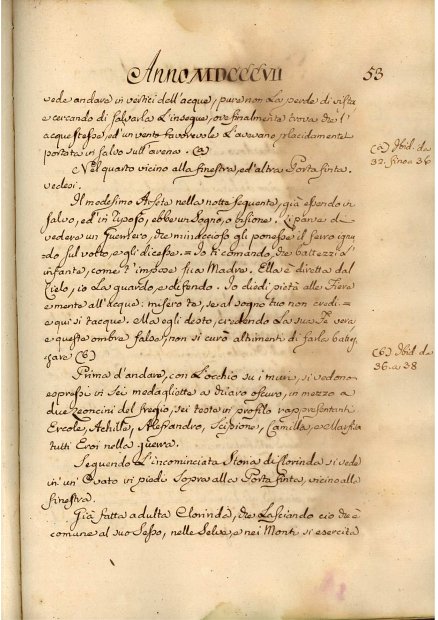 Anno MDCCCVII 53
vede andare in vertici dell'acque, pure non La perde di vista
e cercando di salvarla L'insegue, ove finalmente trova che l'
acque stesse, ed un vento favorevole L'avevano placidamente
portata in salvo sull'arena. (a)
(a) Ibid. da
32. fino a 36
Nel quarto vicino alla finestra, ed'altra Porta finta.
vedesi.
Il medesimo Arsete nella notte seguente, già essendo in
salvo, ed' in riposo, ebbe un Sogno, o visione. Gli parve di
vedere un Guerrero, che minaccioso gli ponesse il ferro ignu-
do sul volto, e gli dicesse = Io ti comando, che battezzi l'
infante, come t'impose sua Madre. Ella è diletta dal
Cielo, io La guardo, e difendo. Io diedi pietà alle Fiere
e mente all'Acque: misero te, se al sogno tuo non credi =
e qui si tacque. Ma egli desto, credendo La sua Fe vera
e queste ombre false, non si curò altrimenti di farla battez-
zare (b)
(b) Ibid. da
36. a 38
Prima d'andare, con L'occhio su i muri, si vedono
espressi in sei medagliette a chiaro oscuro, in mezzo a
due Leoncini del fregio, sei teste in profilo rappresentanti
Ercole, Achille, Alessandro, Scipione, Camilla, e Marfisa
tutti Eroi nella guerra.
Seguendo L'incominciata Storia di Clorinda si vede
in' un' Ovato in piedi sopra alla Porta finta, vicino alla
finestra.
Già fatta adulta Clorinda, che Lasciando ciò ch'è
comune al suo Sesso, nelle Selve, e nei Monti si esercita